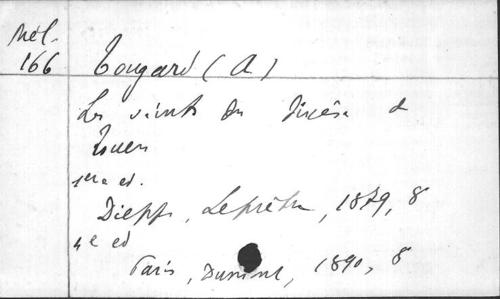 Mél.
166
Tougard (A)
Les saints du diocèse de
Rouen
1ere ed.
Dieppe, Leprêtre, 1879, 8
4e ed
Paris, Dumont, 1890, 8